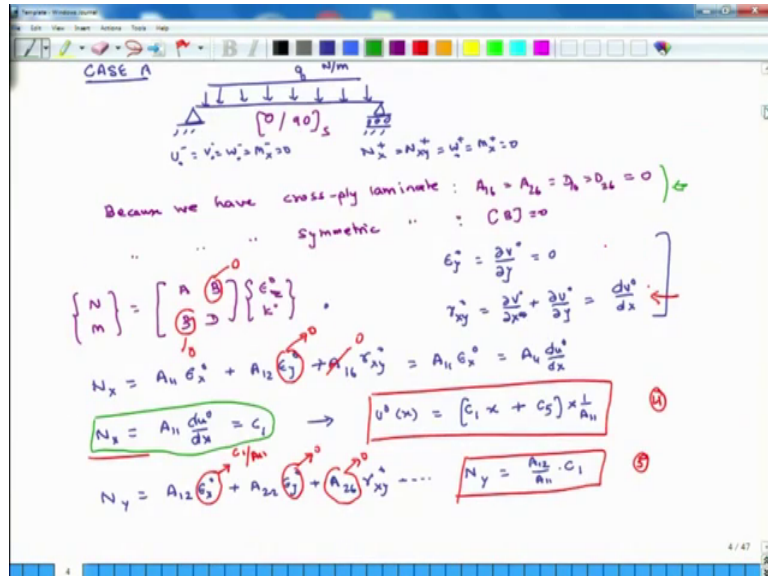 Template - Windows Journal
File Edit View Insert Actions Tools Help
CASE A
q N/m
[0/90]s
U°⁻ = V°⁻ = W°⁻ = Mx⁻ = 0 Nx⁺ = Nxy⁺ = W°⁺ = Mx⁺ = 0
Because we have cross-ply laminate : A16 = A26 = D16 = D26 = 0
" " " symmetric " : [B] = 0
εy° = ∂v°/∂y = 0
{N M} = [A B B D] {ε° k°} .
0
0
γxy° = ∂v°/∂x + ∂u°/∂y = dv°/dx
Nx = A11 εx° + A12 εy° + A16 γxy° = A11 εx° = A11 du°/dx
0 0
Nx = A11 du°/dx = C1 → U°(x) = [C1 x + C5] × 1/A11 4
C1/A11 0 0
Ny = A12 εx° + A22 εy° + A26 γxy° ---- Ny = A12/A11 · C1 5
4 / 47
4